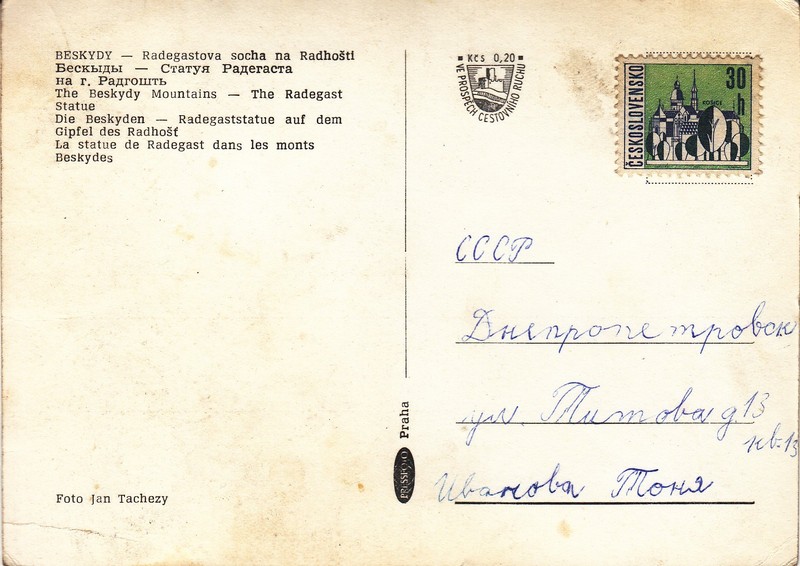 BESKYDY — Radegastova socha na Radhošti
Бескыды — Статуя Радегаста
на г. Радгошть
The Beskydy Mountains — The Radegast
Statue
Die Beskyden — Radegaststatue auf dem
Gipfel des Radhošť
La statue de Radegast dans les monts
Beskydes
Foto Jan Tachezy
PRESSFOTO Praha
Kčs 0,20
VE PROSPĚCH CESTOVNÍHO RUCHU
ČESKOSLOVENSKO
30 h
KOŠICE
СССР
Днепропетровск
ул. Титова д. 13
кв-13
Иванова Тоня